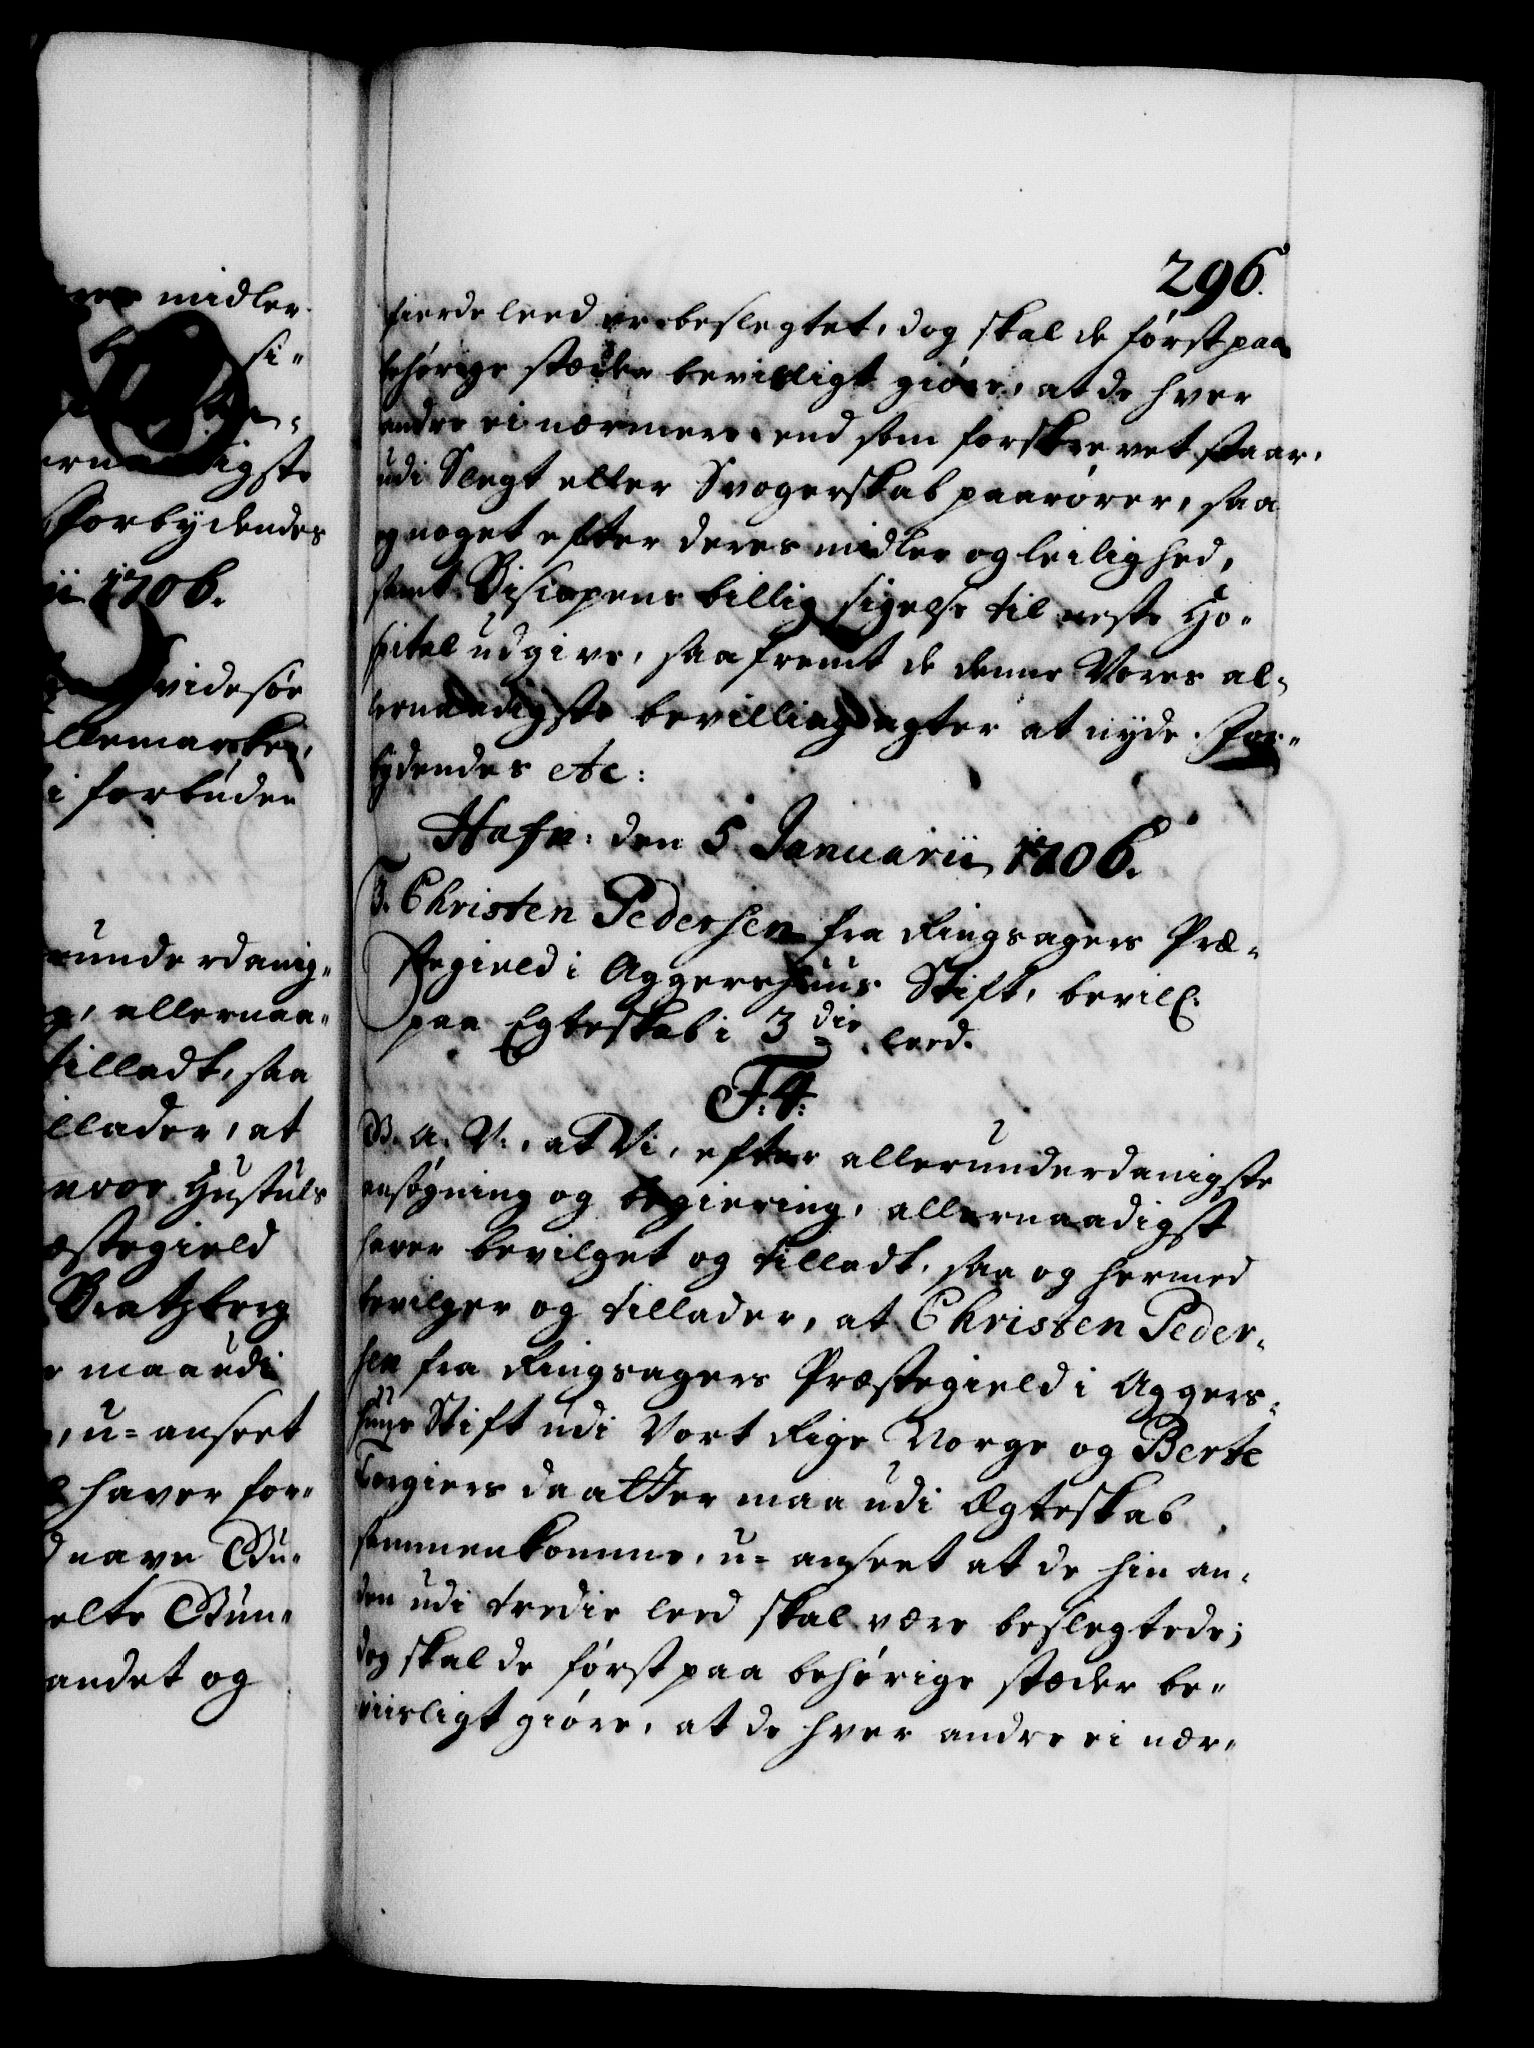 midler
si-
Forbydendes
1706.
Hvidesøe
llemarken,
i forbuden
underdanig-
allernaa-
tilladt, saa
llader, at
Hustuls
æstegield
Bratzberg
maa udi
u-anseet
haver for-
nave Gu-
elte Gun-
andet og
296.
fierde leed ere beslegtet, dog skal de først paa
behørige stæder bevisligt giøre, at de hver
andre ei nærmere end som forskrevet staar,
udi Slegt eller Svogerskab paarører, saa
og noget efter deres midler og leilighed,
samt Biscopens billig sigelse til neste Ho-
spital udgive, saafremt de denne Vores al-
lernaadigste bevilling agter at nyde. For-
bydendes etc:
Hafn: den 5 Januarii 1706.
Christen Pedersen fra Ringsagers Præ-
stegield i Aggershuus Stift, bevill:
paa Egteskab i 3die leed.
F. 4.
G. A. V., at Vi, efter allerunderdanigste
ansøgning og begiering, allernaadigst
haver bevilget og tilladt, saa og hermed
bevilger og tillader, at Christen Peder-
sen fra Ringsagers Præstegield i Aggers-
huus Stift udi Vort Rige Norge og Berte
Torgiers daatter maa udi Ægteskab
sammenkomme, u-anseet at de hin an-
den udi tredie leed skal være beslegtede;
dog skal de først paa behørige stæder be-
viisligt giøre, at de hver andre ei nær-